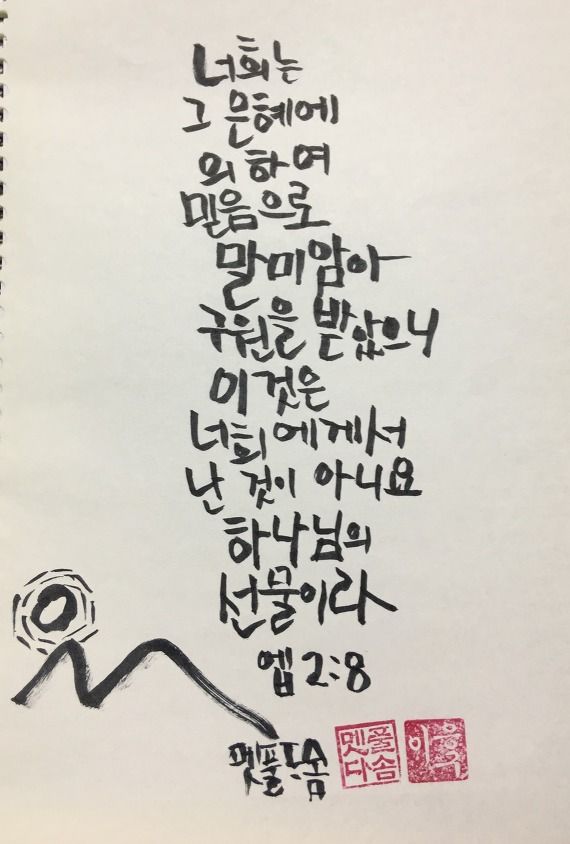 너희는
그 은혜에
의하여
믿음으로
말미암아
구원을 받았으니
이것은
너희에게서
난 것이 아니요
하나님의
선물이라
엡 2:8
멧풀다솜
멧풀
다솜